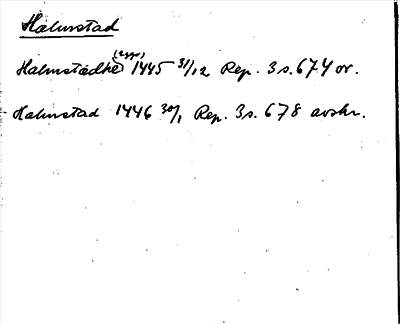 Halmstad
(2 ggr)
Halmstadhe 1445 31/12 Rep. 3 s. 674 or.
Halmstad 1446 30/1 Rep. 3 s. 678 avskr.